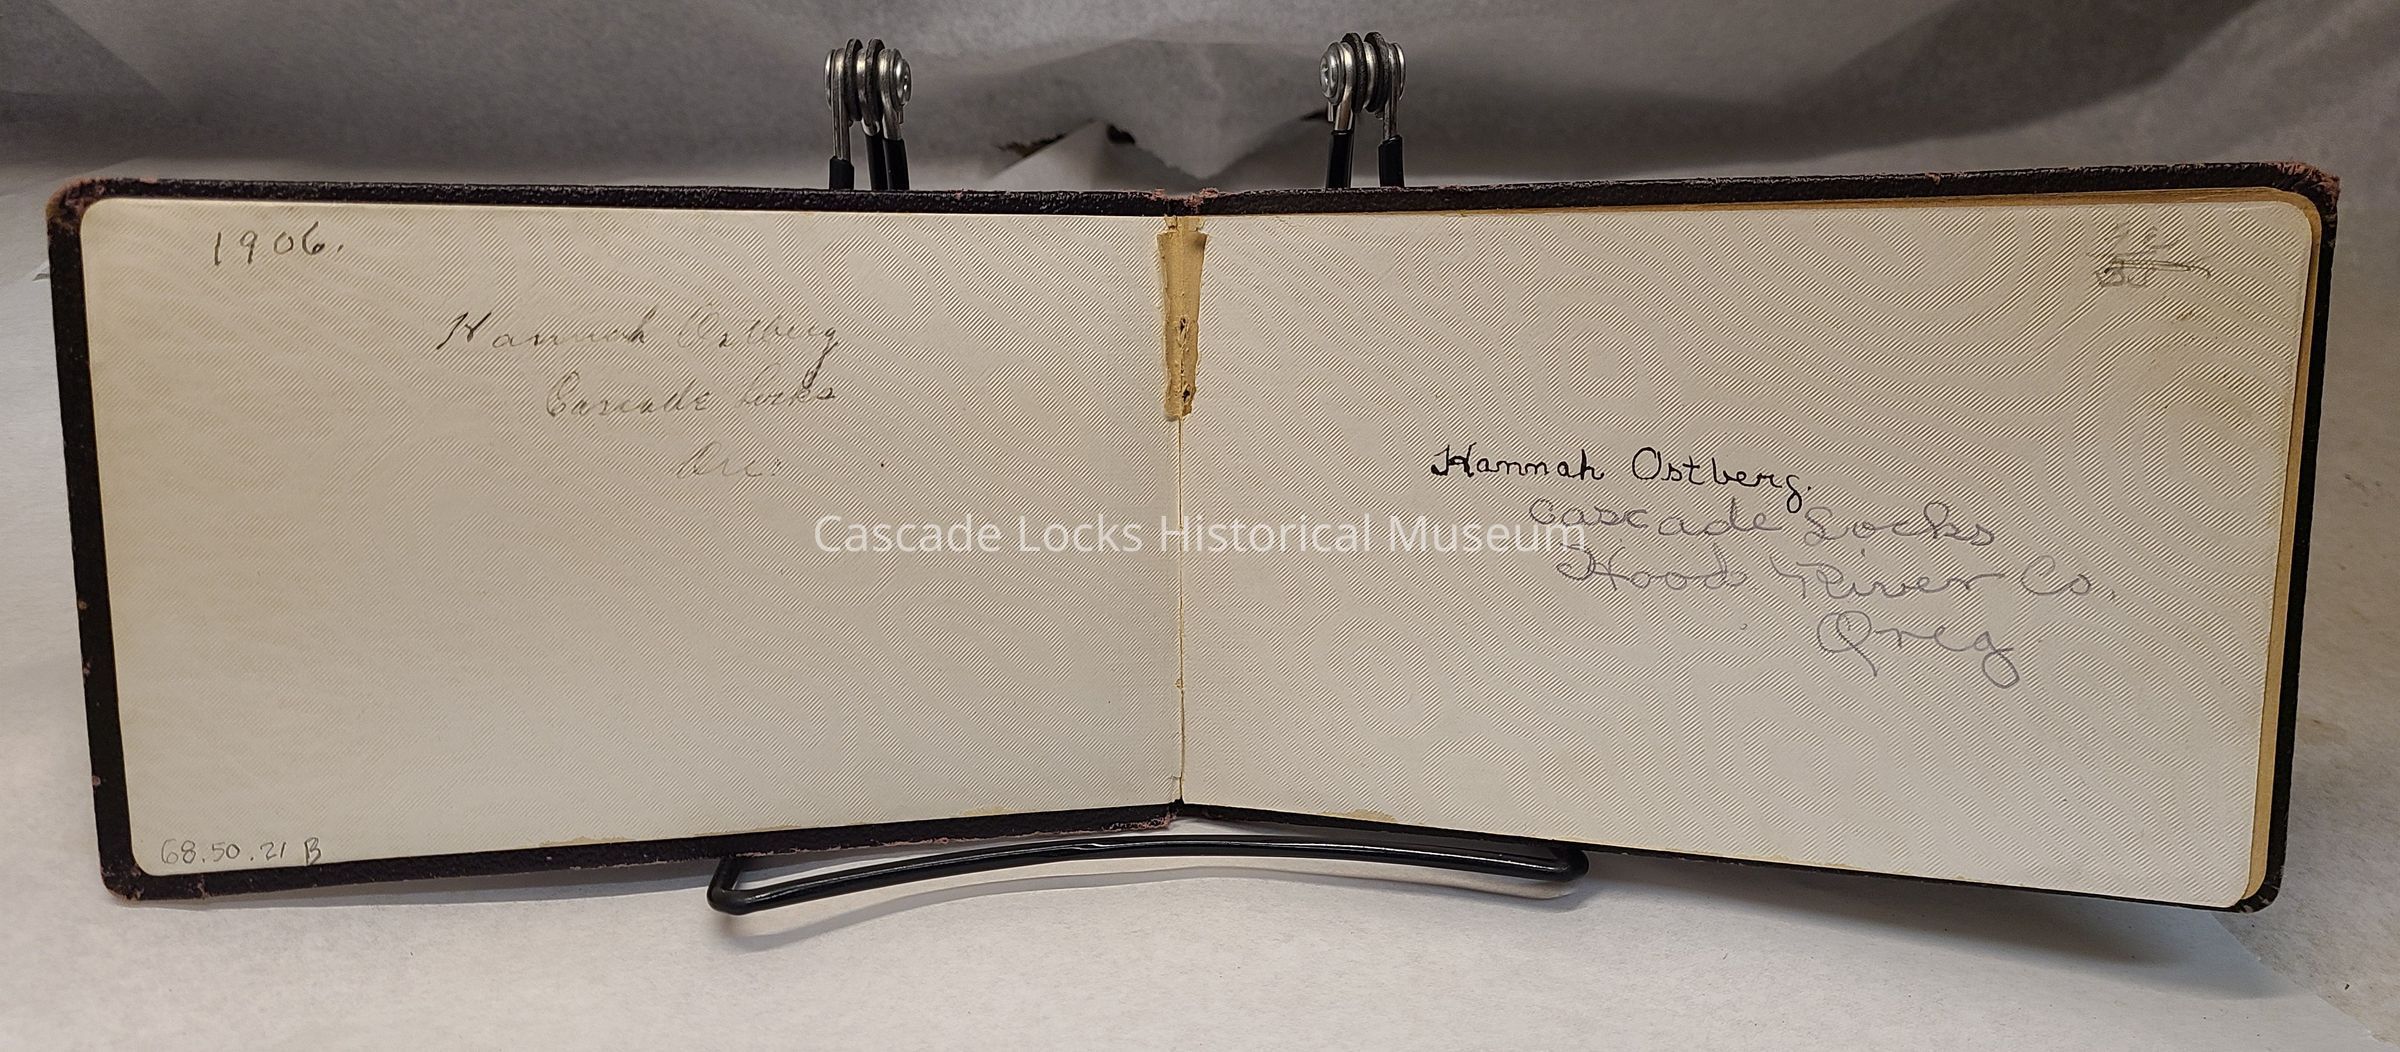 1906.
Hannah Ostberg
Cascade Locks
Ore.
68.50.21 B
Hannah Ostberg.
Cascade Locks
Hood River Co.
Oreg
Cascade Locks Historical Museum